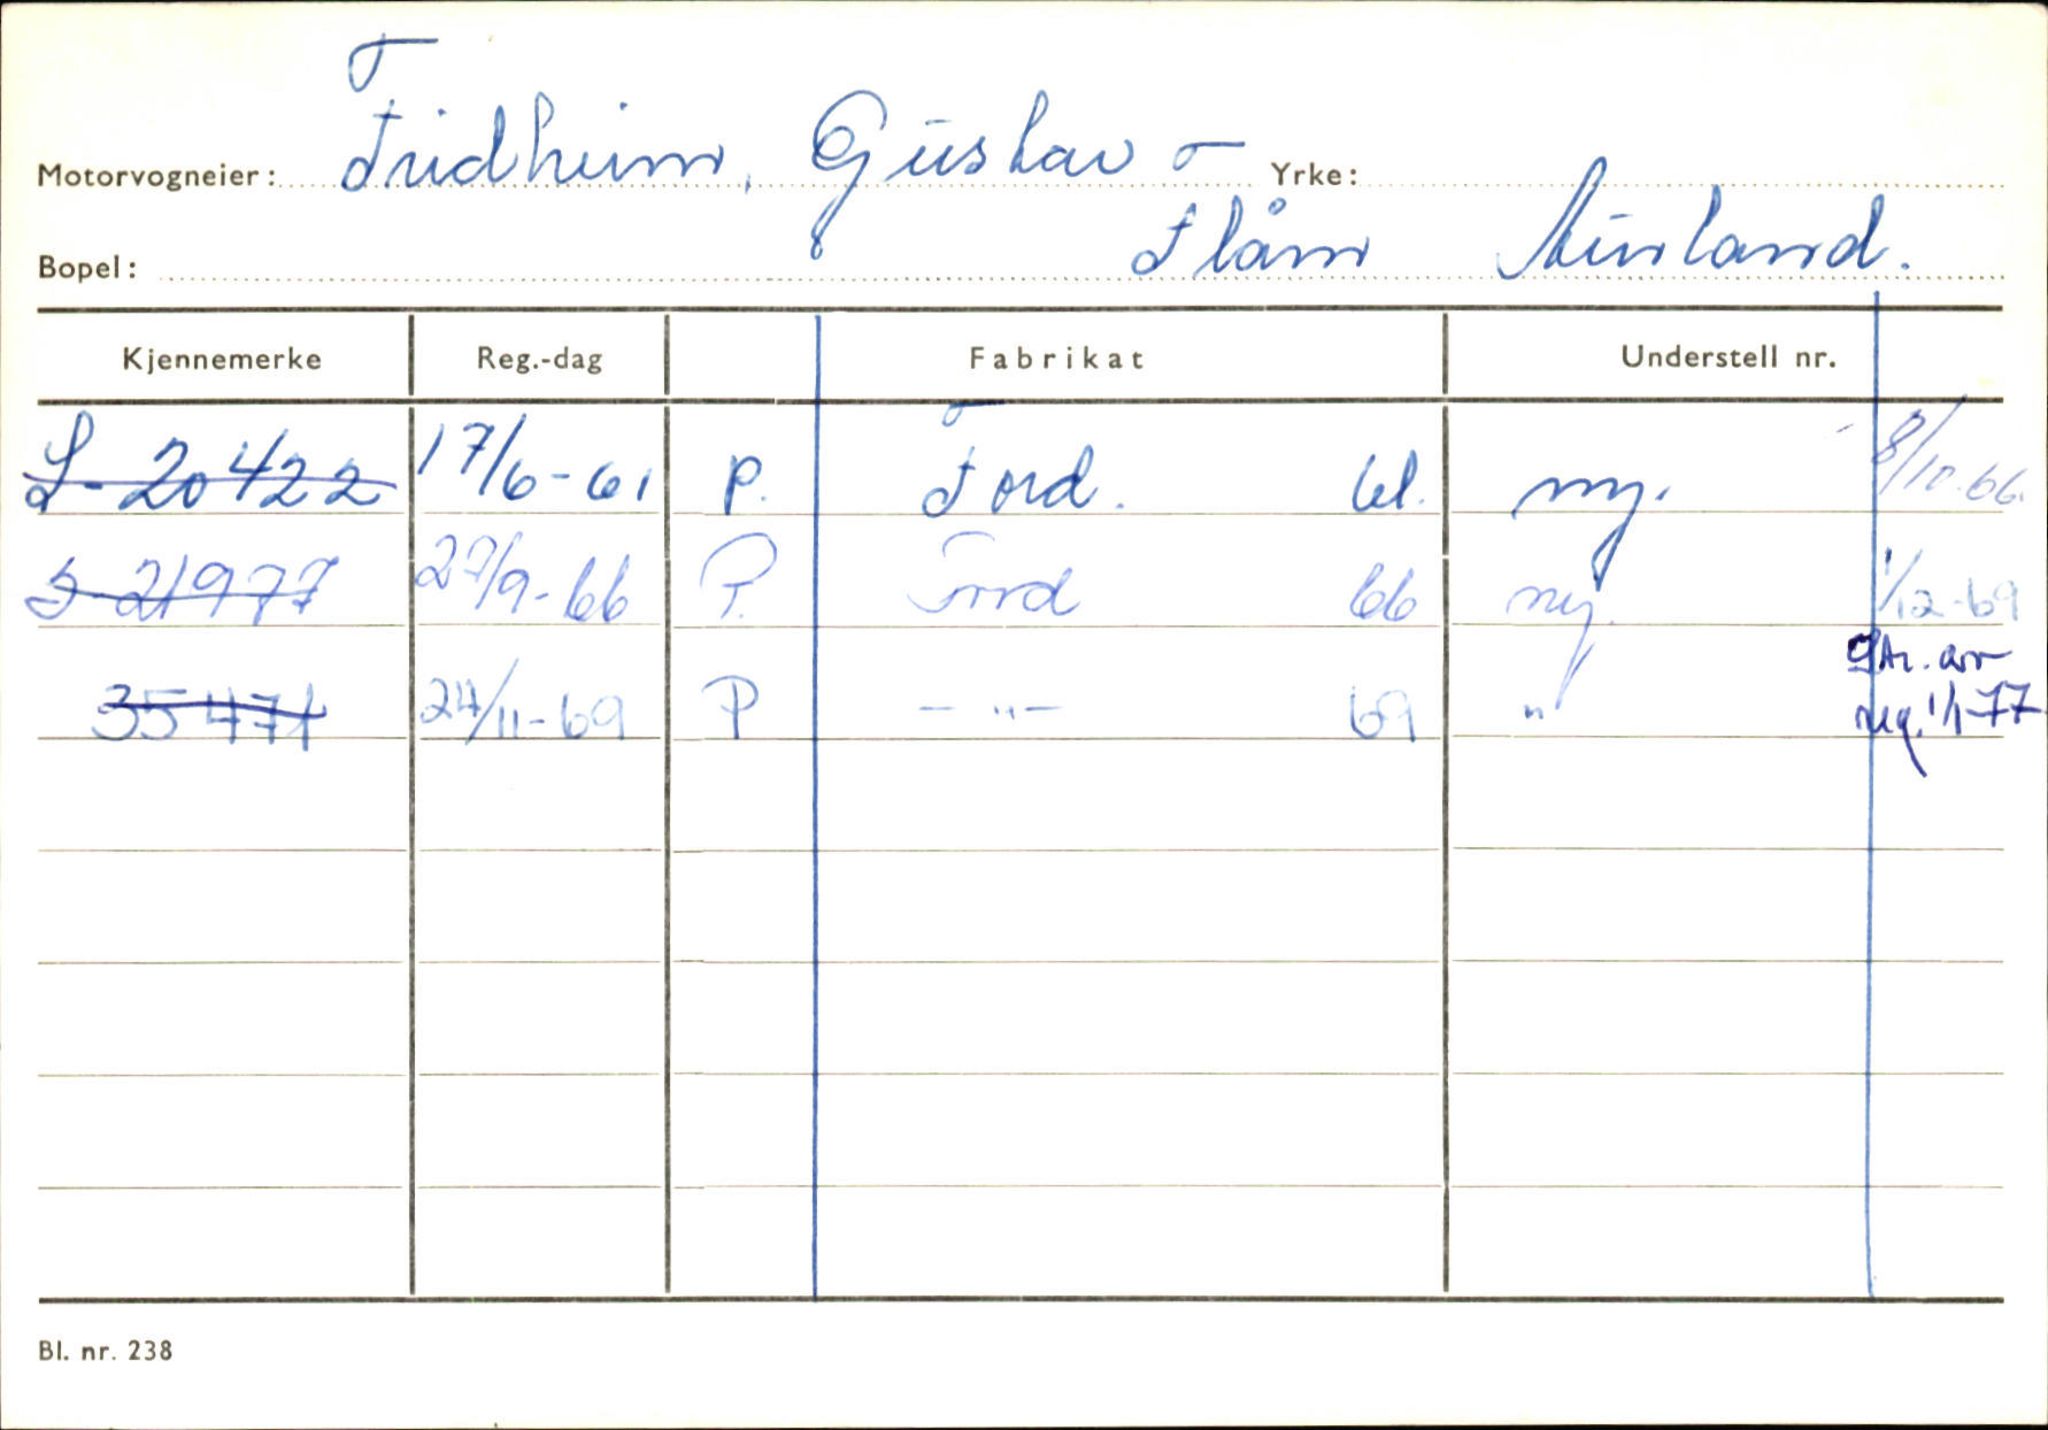 Motorvogneier: Fridheim, Gustav Yrke:
Bopel: Flåm Aurland.
Kjennemerke Reg.-dag Fabrikat Understell nr.
S-20422 17/6-61 P. Ford. 61. ny. 8/10-66.
S-21977 27/9-66 P. Ford 66 ny. 1/12-69
35471 24/11-69 P -"- 69 " av
reg. 1/1-77
Bl. nr. 238